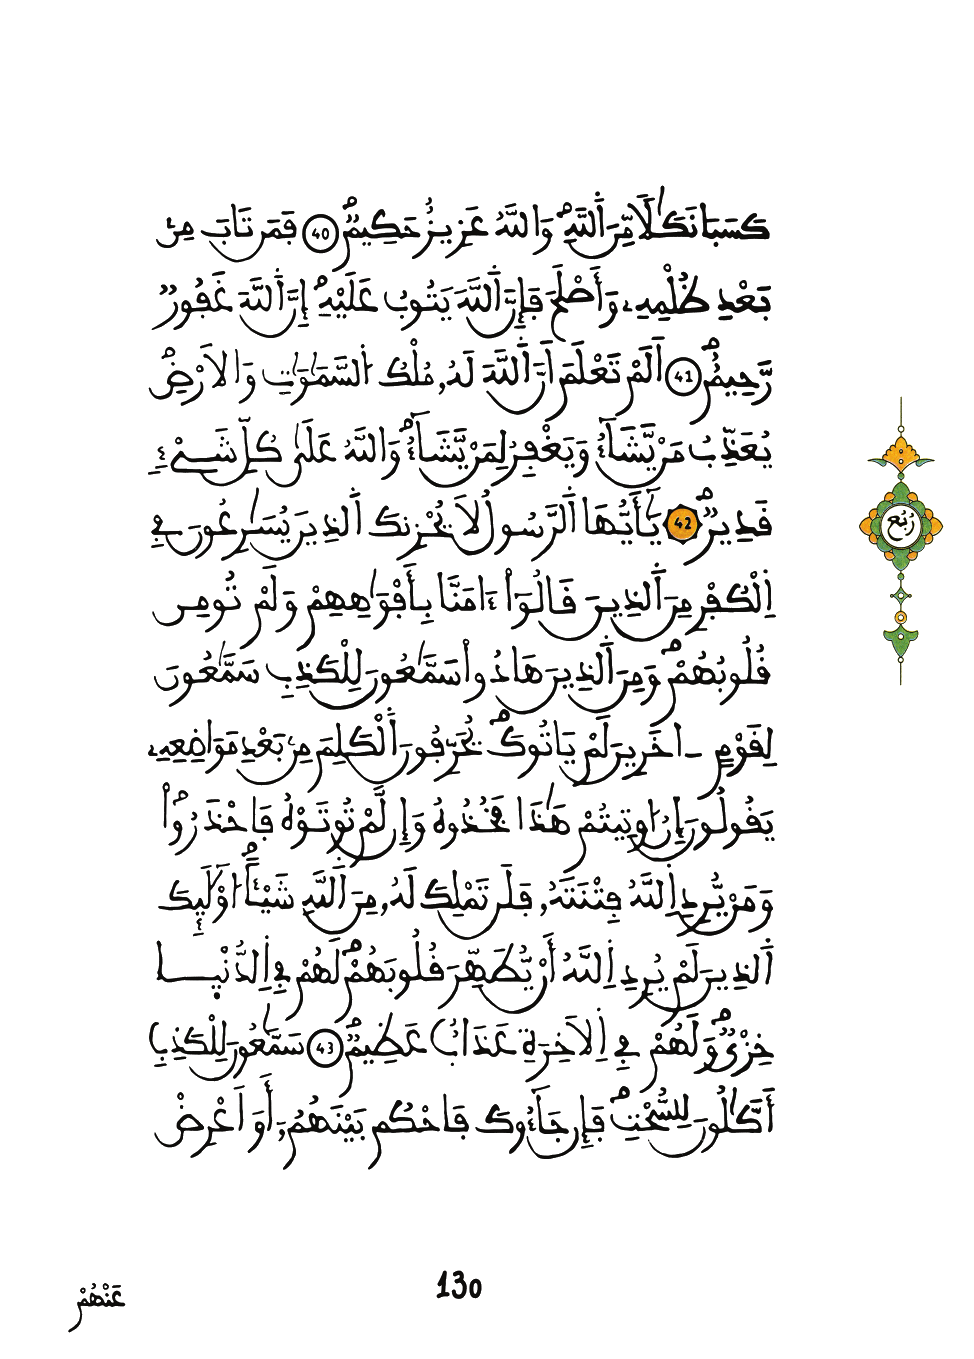 كَسَبَا نَكَٰلٗا مِّنَ اَ۬للَّهِۖ وَاللَّهُ عَزِيزٌ حَكِيمٞۖ 40 فَمَن تَابَ مِنۢ
بَعْدِ ظُلْمِهِۦ وَأَصْلَحَ فَإِنَّ اَ۬للَّهَ يَتُوبُ عَلَيْهِۖ إِنَّ اَ۬للَّهَ غَفُورٞ
رَّحِيمٌۖ 41 اَلَمْ تَعْلَمَ اَنَّ اَ۬للَّهَ لَهُۥ مُلْكُ اُ۬لسَّمَٰوَٰتِ وَالَارْضِۖ
يُعَذِّبُ مَنْ يَّشَآءُ وَيَغْفِرُ لِمَنْ يَّشَآءُۖ وَاللَّهُ عَلَىٰ كُلِّ شَےْءٖ
قَدِيرٞۖ 42 يَٰٓأَيُّهَا اَ۬لرَّسُولُ لَا يُحْزِنكَ اَ۬لذِينَ يُسَٰرِعُونَ فِے
اِ۬لْكُفْرِ مِنَ اَ۬لذِينَ قَالُوٓاْ ءَامَنَّا بِأَفْوَٰهِهِمْ وَلَمْ تُومِن
قُلُوبُهُمْۖ وَمِنَ اَ۬لذِينَ هَادُواْ سَمَّٰعُونَ لِلْكَذِبِ سَمَّٰعُونَ
لِقَوْمٍ ـ اخَرِينَ لَمْ يَاتُوكَۖ يُحَرِّفُونَ اَ۬لْكَلِمَ مِنۢ بَعْدِ مَوَاضِعِهِۦ
يَقُولُونَ إِنُ ا۟وتِيتُمْ هَٰذَا فَخُذُوهُ وَإِن لَّمْ تُوتَوْهُ فَاحْذَرُواْۖ
وَمَنْ يُّرِدِ اِ۬للَّهُ فِتْنَتَهُۥ فَلَن تَمْلِكَ لَهُۥ مِنَ اَ۬للَّهِ شَيْـٔاًۖ ا۟وْلَٰٓئِكَ
اَ۬لذِينَ لَمْ يُرِدِ اِ۬للَّهُ أَنْ يُّطَهِّرَ قُلُوبَهُمْۖ لَهُمْ فِے اِ۬لدُّنْيـا
خِزْيٞۖ وَلَهُمْ فِے اِ۬لَاخِرَةِ عَذَابٌ عَظِيمٞۖ 43 سَمَّٰعُونَ لِلْكَذِبِ
أَكَّٰلُونَ لِلسُّحْتِۖ فَإِن جَآءُوكَ فَاحْكُم بَيْنَهُمُۥٓ أَوَ اَعْرِضْ
رُبُع
130
عَنْهُمْ